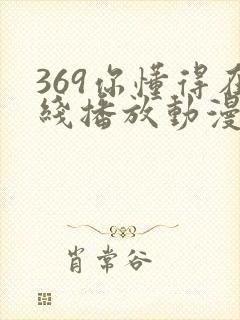 369你懂得在
綫播放動漫
肖常谷